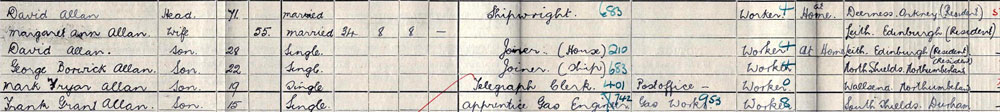 David Allan Head. 71. married Shipwright. 683 Worker at Home. Deerness. Orkney (Resident)
Margaret Ann Allan. Wife 55. married 34 8 8 — Leith. Edinburgh (Resident)
David Allan. Son. 28 Single. Joiner. (House) 210 Worker At Home Leith. Edinburgh (Resident)
George Borwick Allan. Son. 22 Single. Joiner. (Ship) 683 Worker North Shields. Northumberland (Resident)
Mark Fryar Allan Son. 19 Single. Telegraph Clerk. 401 Post office — Worker Wallsend. Northumberland
Frank Grant Allan. Son. 15 Single. Apprentice Gas Engineer Gas Works 953 Worker South Shields. Durham